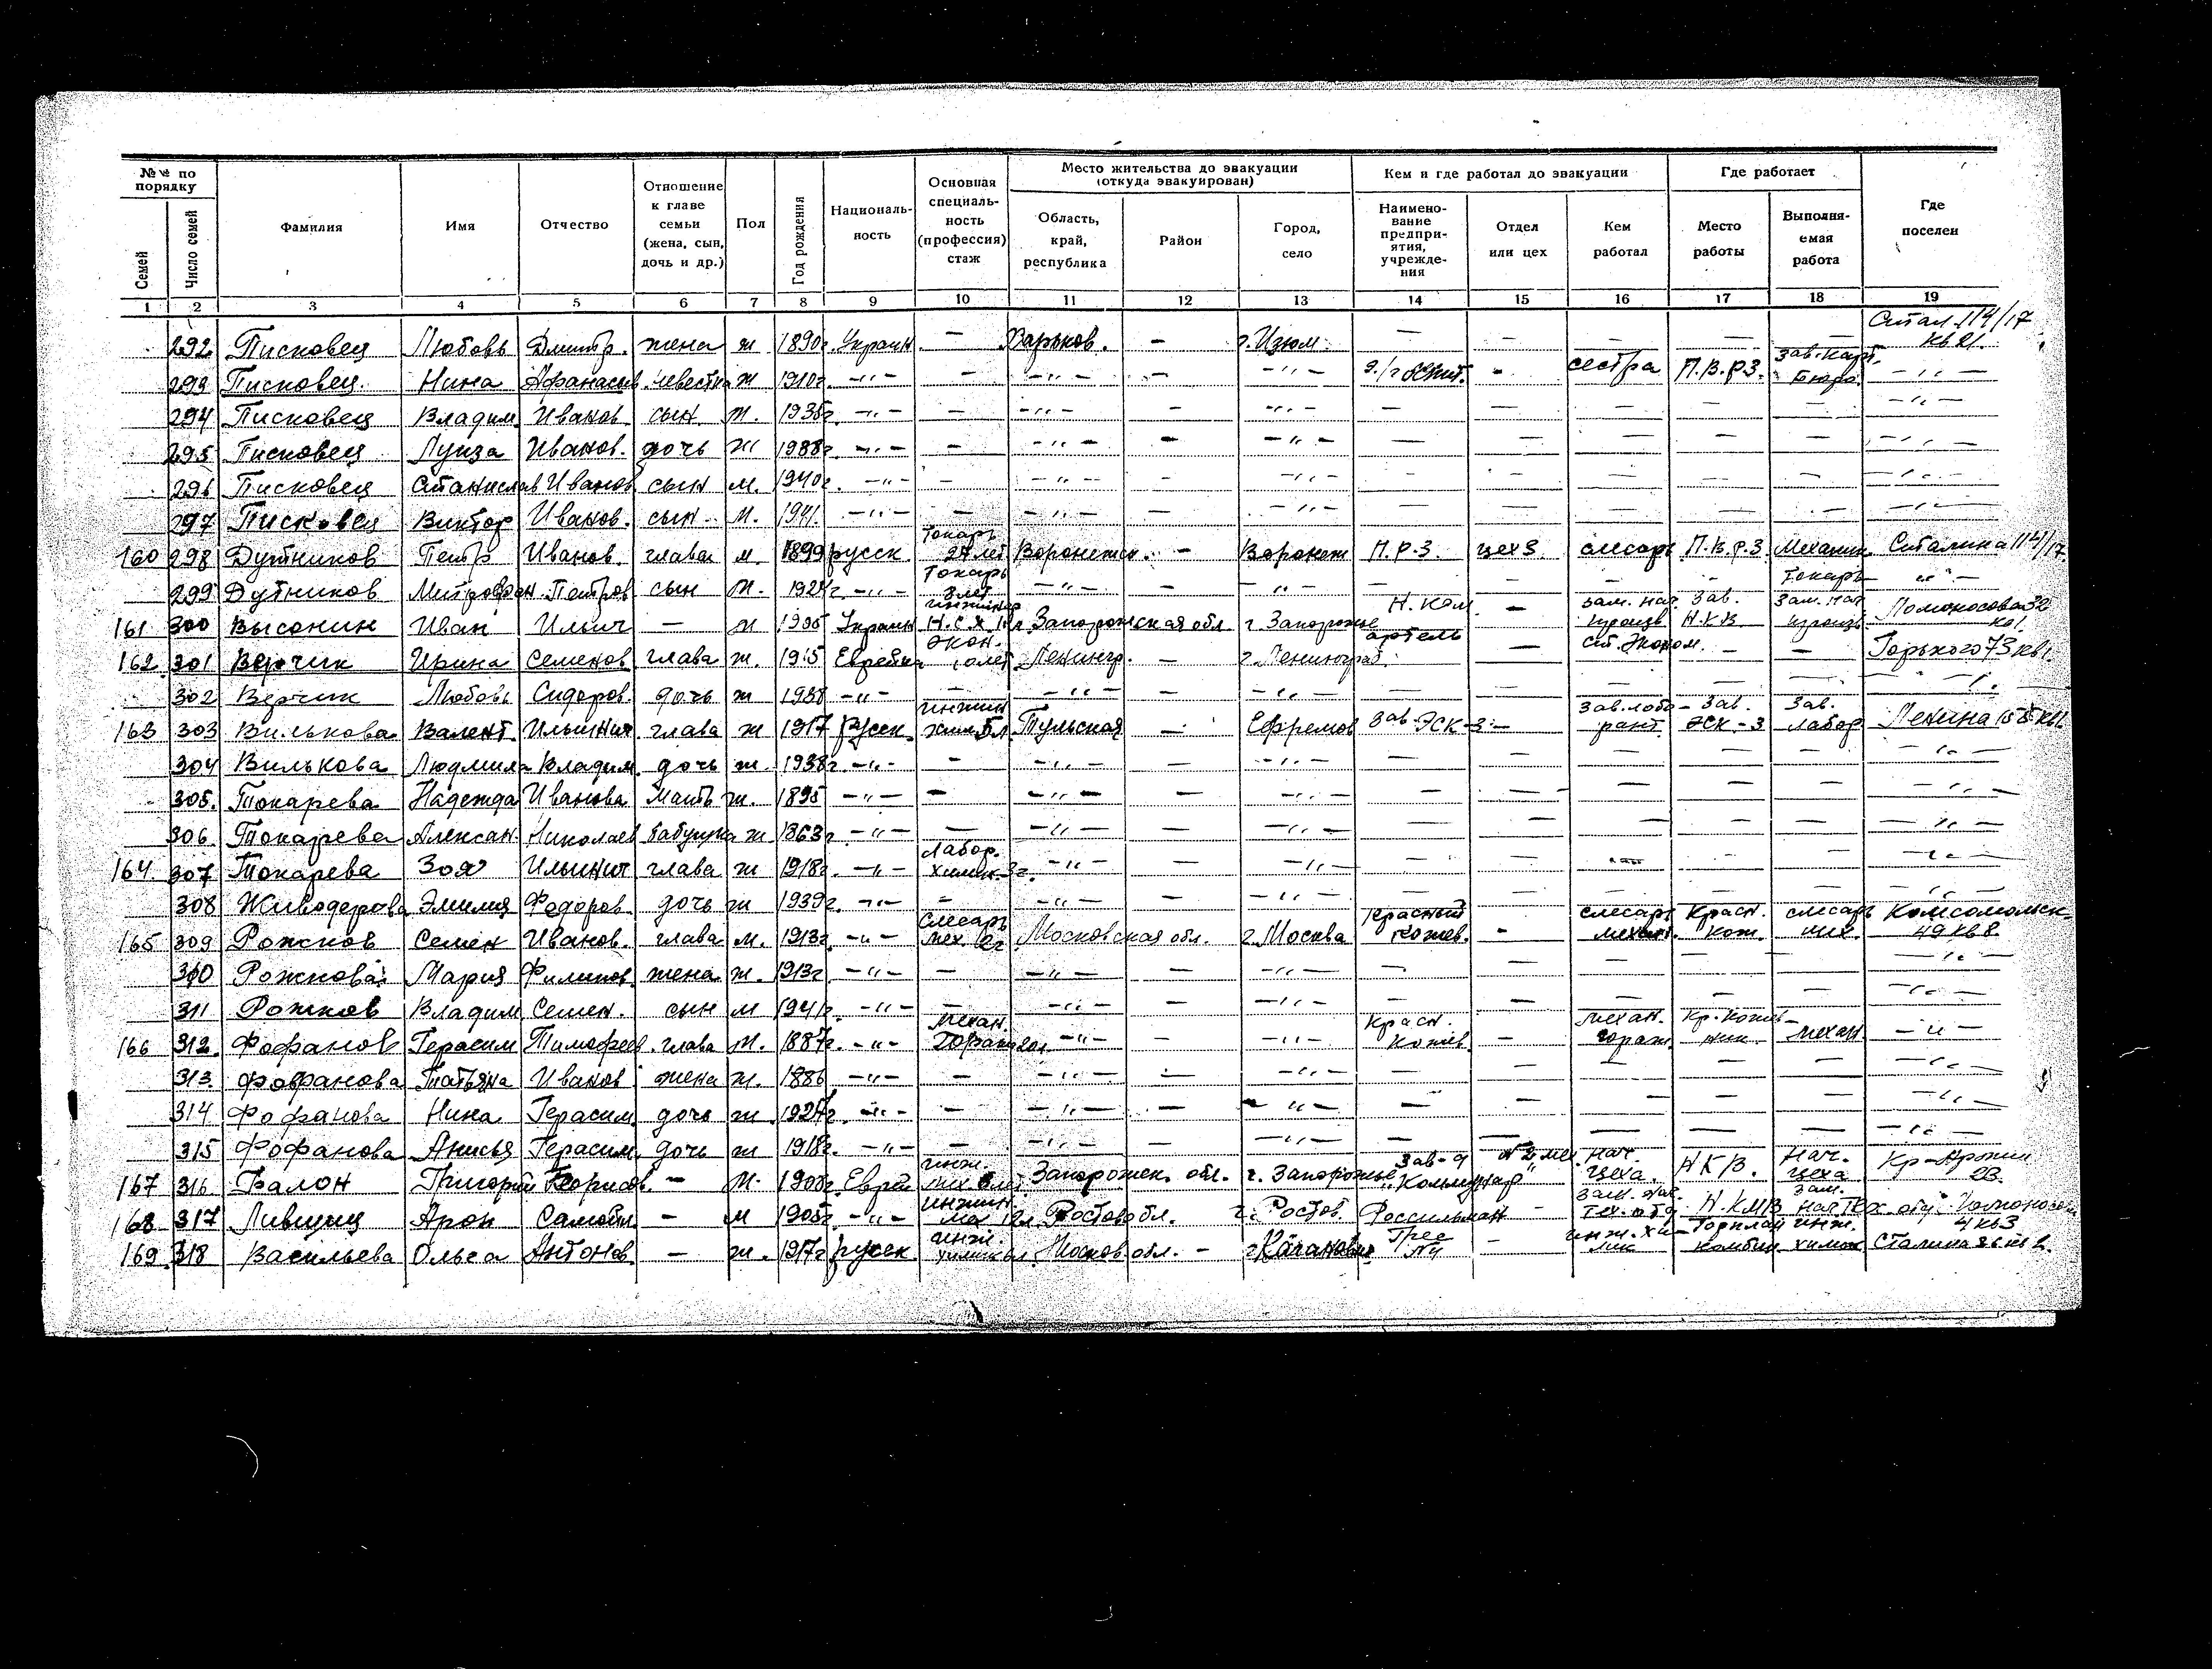 №№ по порядку | Фамилия | Имя | Отчество | Отношение к главе семьи (жена, сын, дочь и др.) | Пол | Год рождения | Националь-ность | Основная специаль-ность (профессия) стаж | Место жительства до эвакуации (откуда эвакуирован) | Кем и где работал до эвакуации | Где работает | Где поселен
Семей | Число семей | Область, край, республика | Район | Город, село | Наимено-вание предпри-ятия, учрежде-ния | Отдел или цех | Кем работал | Место работы | Выполня-емая работа
1 2 3 4 5 6 7 8 9 10 11 12 13 14 15 16 17 18 19
292 Писковец Любовь Дмитр. жена ж 1890г. Украин. — Харьков. — г. Изюм. — — — — — Стал. 114/17 кв 21.
293 Писковец Нина Афанасьев. невестка ж 1910г. —"— — —"— — —"— - сестра П.В.РЗ. зав. карт. бюро —"—
294 Писковец Владим Иванов сын м. 1935г. —"— — —"— — —"— — — — — — —"—
295 Писковец Луиза Иванов. дочь ж 1938г. —"— — —"— — —"— — — — — — —"—
296 Писковец Станислав Иванов сын м. 1940г. —"— — —"— — —"— — — — — — —"—
297 Писковец Виктор Иванов. сын м. 1941. —"— — —"— — —"— — — — — — —"—
160 298 Дутников Петр Иванов. глава м. 1899 русск. Токарь 27 лет Воронежск. — Воронеж П.Р.З. цех 3. слесарь П.В.Р.З. Механик Сталина 114/17
299 Дутников Митрофан Петров сын м. 1924г. —"— Токарь 3 лет —"— — —"— — — — — Токарь —"—
161 300 Высонин Иван Ильич — м 1906 Украин инженер Запорожская обл г. Запорожье Н. Ком — зам. нач произв зав. Н.К.В. зам. нач произв. Ломоносова 32 кв 1.
162 301 Верчик Ирина Семенов. глава ж. 1915 Еврейка экон. 10 лет Ленингр. — г. Ленинград. артель — ст. эконом. — — Горького 73 кв 1.
302 Верчик Любовь Сидоров. дочь ж 1938 —"— — —"— — —"— — — — — — —"—
163 303 Вилькова Валент. Ильинич глава ж 1917 Русск. инжен хим 5л Тульская — Ефремов зав. ЭСК-3 — зав. лабо-рант. зав. ЭСК-3 зав. лабор Ленина 155 кв 1.
304 Вилькова Людмила Владим. дочь ж. 1938г. —"— — —"— — —"— — — — — — —"—
305. Токарева Надежда Иванова мать ж. 1895 —"— — —"— — —"— — — — — — —"—
306. Токарева Алексан. Николаев бабушка ж 1863г —"— — —"— — —"— — — — — — —"—
164. 307 Токарева Зоя Ильинич глава ж 1918г. —"— Лабор. химик. 3г. —"— — —"— — — — — — —"—
308 Живодерова Эмилия Федоров. дочь ж 1939г. —"— — —"— — —"— — — — — — —"—
165 309 Рожков Семен Иванов. глава м. 1913г. —"— Слесарь мех. 12г Московская обл. г. Москва Красный кожев. — слесарь механ. Красн. кож. слесарь мех. Комсомольск. 49 кв 8.
310 Рожкова Мария Филипов. жена ж. 1913г —"— — —"— — —"— — — — — — —"—
311 Рожков Владим Семен. сын м 1941г. —"— — —"— — —"— — — — — — —"—
166 312. Фофанов Герасим Тимофеев. глава м. 1887г. —"— Механ. гараж 20л —"— — —"— Красн. Кожев. — Механ. гараж. Кр. Кожев-ник. механ —"—
313 Фофанова Татьяна Иванов жена ж. 1886 —"— — —"— — —"— — — — — — —"—
314. Фофанова Нина Герасим. дочь ж. 1927г. —"— — —"— — —"— — — — — — —"—
315 Фофанова Анисья Герасим. дочь ж 1918г. —"— — —"— — —"— — — — — — —"—
167 316 Фалон Григорий Борисов. — м. 1900г. Еврей инж. Запорожск. обл. г. Запорожье Зав-д "Коммунар" нач. цеха. НКВ. Нач. цеха Кр-Армии 23.
168 317 Лившиц Арон Самойл. — м 1905г —"— инжин Ростов обл. г. Ростов Россельмаш — зам. нач. тех. отд Н.КМВ зам. нач тех отд Ломоносов 4 кв 3
169 318 Васильева Ольга Антонов — ж. 1917г русск. инж. химик Москов обл. — г. Каганович Грес №4 — инж. хи-мик комбин инж. химик Сталина